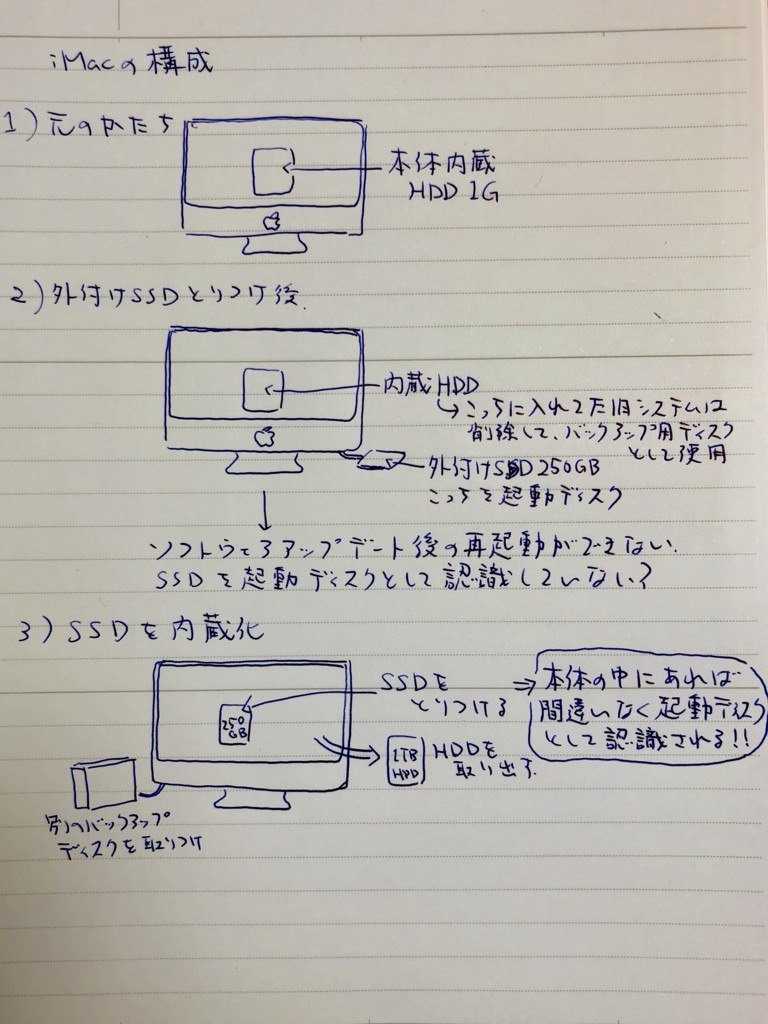 iMacの構成
1)元のかたち
本体内蔵
HDD 1G
2)外付けSSDとりつけ後.
内蔵HDD
→こっちに入れてた旧システムは
削除して、バックアップ用ディスク
として使用
外付けSSD 250GB
こっちを起動ディスク
ソフトウェアアップデート後の再起動ができない.
SSDを起動ディスクとして認識していない?
3)SSDを内蔵化
250
GB
SSDを
とりつける
⇒
本体の中にあれば
間違いなく起動ディスク
として認識される!!
1TB
HDD
HDDを
取り出す.
別のバックアップ
ディスクを取りつけ